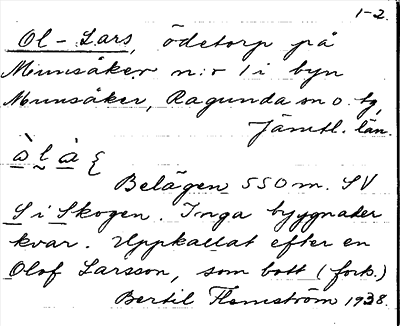 1-2.
Ol-Lars, ödetorp på
Munsåker n:r 1 i byn
Munsåker, Ragunda sn o. tg,
Jämtl. län.
Belägen 550 m. SV
S i Skogen. Inga byggnader
kvar. Uppkallat efter en
Olof Larsson, som bott (fork.)
Bertil Flemström 1938.